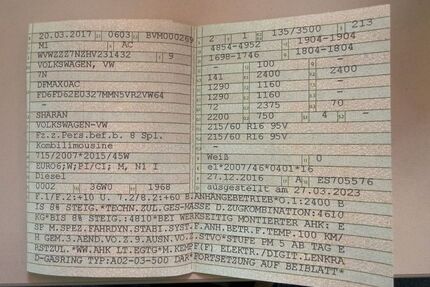 20.03.2017 0603 BVM000269
M1 AC
WVWZZZ7NZHV231432 9
VOLKSWAGEN, VW
7N
DFMAX0AC
FD6FD62E0327MMN5VR2VW64
–
SHARAN
VOLKSWAGEN-VW
Fz.z.Pers.bef.b. 8 Spl.
Kombilimousine
715/2007*2015/45W
EURO6;W;PI/CI; M, N1 I
Diesel
0002 36W0 1968
2 1 135/3500 213
4854-4952 1904-1904
1698-1746 1804-1804
– 100 –
141 2400 2400
1290 1160 –
1290 1160 –
72 2375 70
2200 750 4 –
215/60 R16 95V
215/60 R16 95V
–
Weiß 0
e1*2007/46*0401*16
27.12.2016 A ES705576
ausgestellt am 27.03.2023
F.1/F.2:+10 U. 7.2/8.2:+60 B.ANHÄNGEBETRIEB*O.1:2400 B
IS 8% STEIG.*TECHN.ZUL.GES-MASSE D.ZUGKOMBINATION:4610
KG*BIS 8% STEIG.:4810*BEI WERKSEITIG MONTIERTER AHK: E
SP M.SPEZ.FAHRDYN.STABI.SYST.F.ANH.BETR.F.TEMP.100 KM/
H GEM.3.AEND.VO.Z.9.AUSN.VO.Z.STVO*STUFE PM 5 AB TAG E
RSTZUL.*WW.AHK LT.EGTG*M.KEMPF(F) ELEKTR./DIGIT.LENKRA
D-GASRING TYP:A02-03-500 DAR*FORTSETZUNG AUF BEIBLATT*